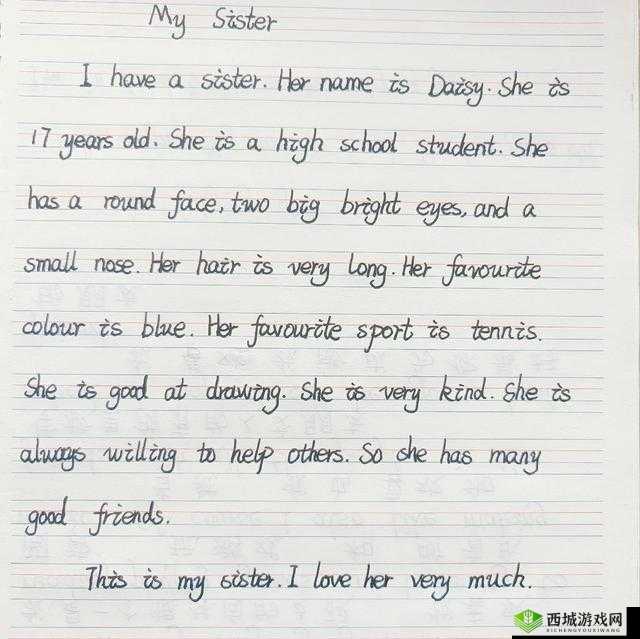 My Sister
I have a sister. Her name is Daisy. She is
17 years old. She is a high school student. She
has a round face, two big bright eyes, and a
small nose. Her hair is very long. Her favourite
colour is blue. Her favourite sport is tennis.
She is good at drawing. She is very kind. She is
always willing to help others. So she has many
good friends.
This is my sister. I love her very much.
西城游戏网
XICHENGYOUXIWANG